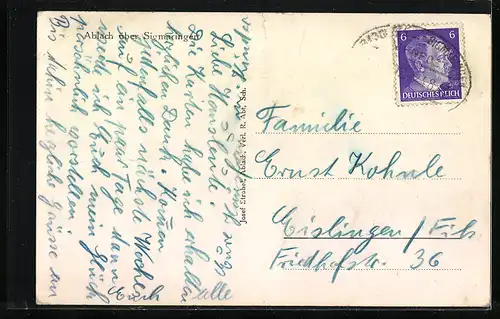 Ablach über Sigmaringen
Liebe Hanslende!
Die Karten habe ich erhalten
herzlichen Dank. Komme
jedenfalls nächste Woche
auf ein paar Tage, dann
werde ich Euch mein Glück
persönlich vorstellen.
Bis dahin herzliche Grüsse an
alle
Euer
Josef Strobel, Ablach, Verl. R. Abt, Sch.
6 6
DEUTSCHES REICH
Familie
Ernst Kohnle
Eislingen/Fils
Friedhofstr. 36